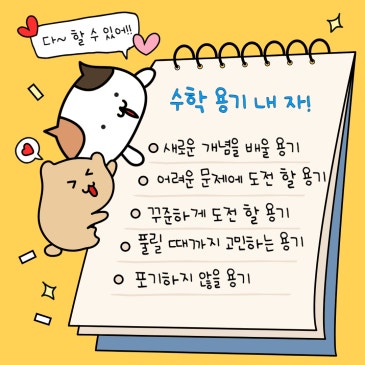 다~ 할 수 있어!!
수학 용기 내 자!
새로운 개념을 배울 용기
어려운 문제에 도전 할 용기
꾸준하게 도전 할 용기
풀릴 때까지 고민하는 용기
포기하지 않을 용기